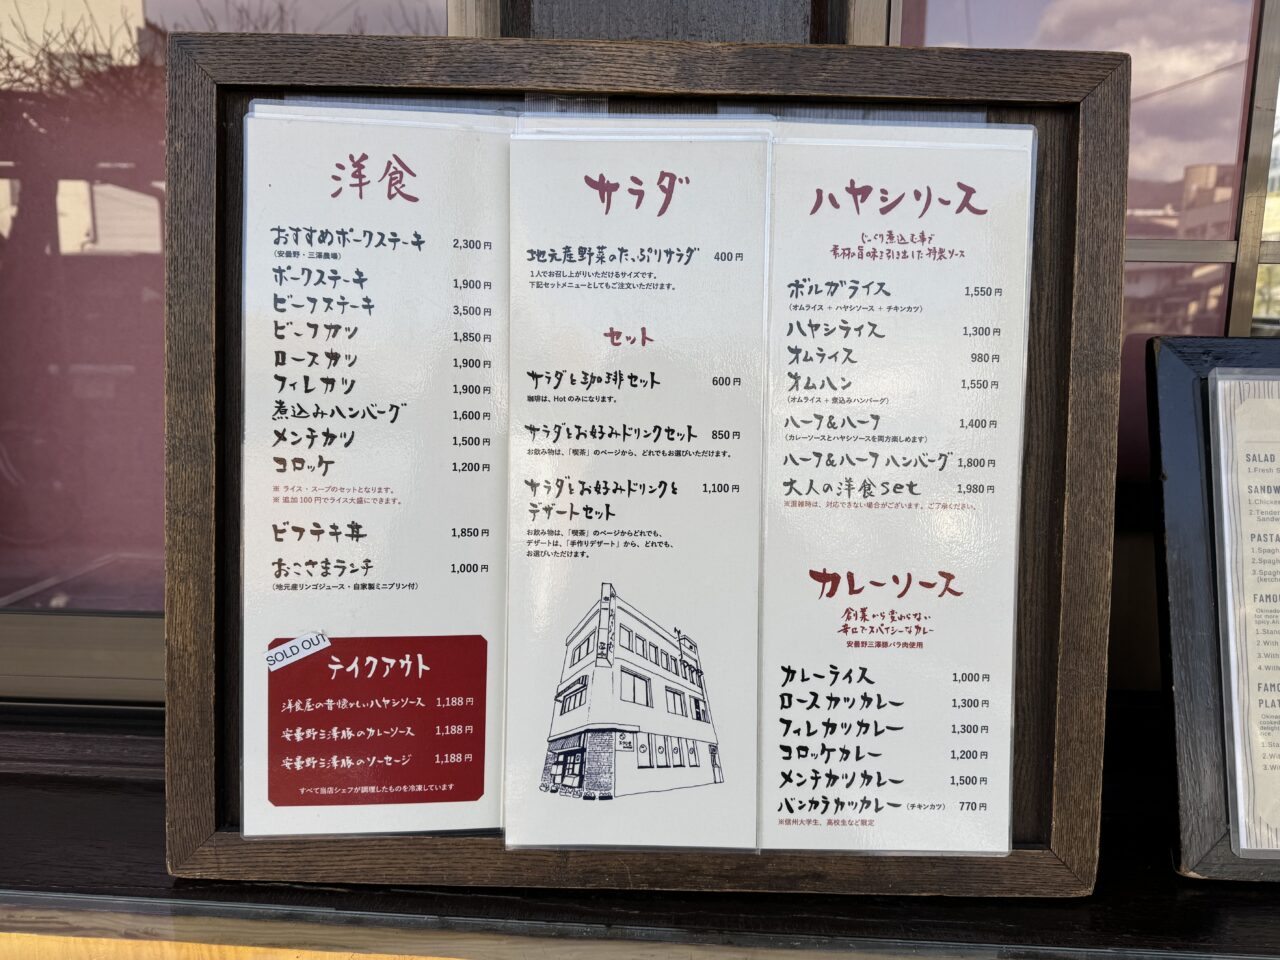 洋食
おすすめポークステーキ 2,300円
（安曇野・三澤農場）
ポークステーキ 1,900円
ビーフステーキ 3,500円
ビーフカツ 1,850円
ロースカツ 1,900円
フィレカツ 1,900円
煮込みハンバーグ 1,600円
メンチカツ 1,500円
コロッケ 1,200円
※ ライス・スープのセットとなります。
※ 追加100円でライス大盛にできます。
ビフテキ丼 1,850円
おこさまランチ 1,000円
（地元産リンゴジュース・自家製ミニプリン付）
SOLD OUT
テイクアウト
洋食屋の昔懐かしいハヤシソース 1,188円
安曇野三澤豚のカレーソース 1,188円
安曇野三澤豚のソーセージ 1,188円
すべて当店シェフが調理したものを冷凍しています
サラダ
地元産野菜のたっぷりサラダ 400円
1人でお召し上がりいただけるサイズです。
下記セットメニューとしてもご注文いただけます。
セット
サラダと珈琲セット 600円
珈琲は、Hotのみになります。
サラダとお好みドリンクセット 850円
お飲み物は、「喫茶」のページから、どれでもお選びいただけます。
サラダとお好みドリンクと 1,100円
デザートセット
お飲み物は、「喫茶」のページからどれでも、
デザートは、「手作りデザート」から、どれでも、
お選びいただけます。
ハヤシソース
じっくり煮込む事で
素材の旨味を引き出した特製ソース
ボルガライス 1,550円
（オムライス + ハヤシソース + チキンカツ）
ハヤシライス 1,300円
オムライス 980円
オムハン 1,550円
（オムライス + 煮込みハンバーグ）
ハーフ&ハーフ 1,400円
（カレーソースとハヤシソースを両方楽しめます）
ハーフ&ハーフ ハンバーグ 1,800円
大人の洋食set 1,980円
※混雑時は、対応できない場合がございます。ご了承ください。
カレーソース
創業から変わらない
辛口でスパイシーなカレー
安曇野三澤豚バラ肉使用
カレーライス 1,000円
ロースカツカレー 1,300円
フィレカツカレー 1,300円
コロッケカレー 1,200円
メンチカツカレー 1,500円
バンカラカツカレー（チキンカツ） 770円
※信州大学生、高校生など限定
SALAD
1.Fresh
SANDW
1.Chicke
2.Tender
Sandw
PASTA
1.Spagh
2.Spagh
3.Spagh
(ketch
FAMO
Okinad
for more
spicy.
1.Sta
2.With
3.With
4.With
FAMO
PLAT
Okina
cooked
delight
rice.
1.Sta
2.Wi
3.Wi